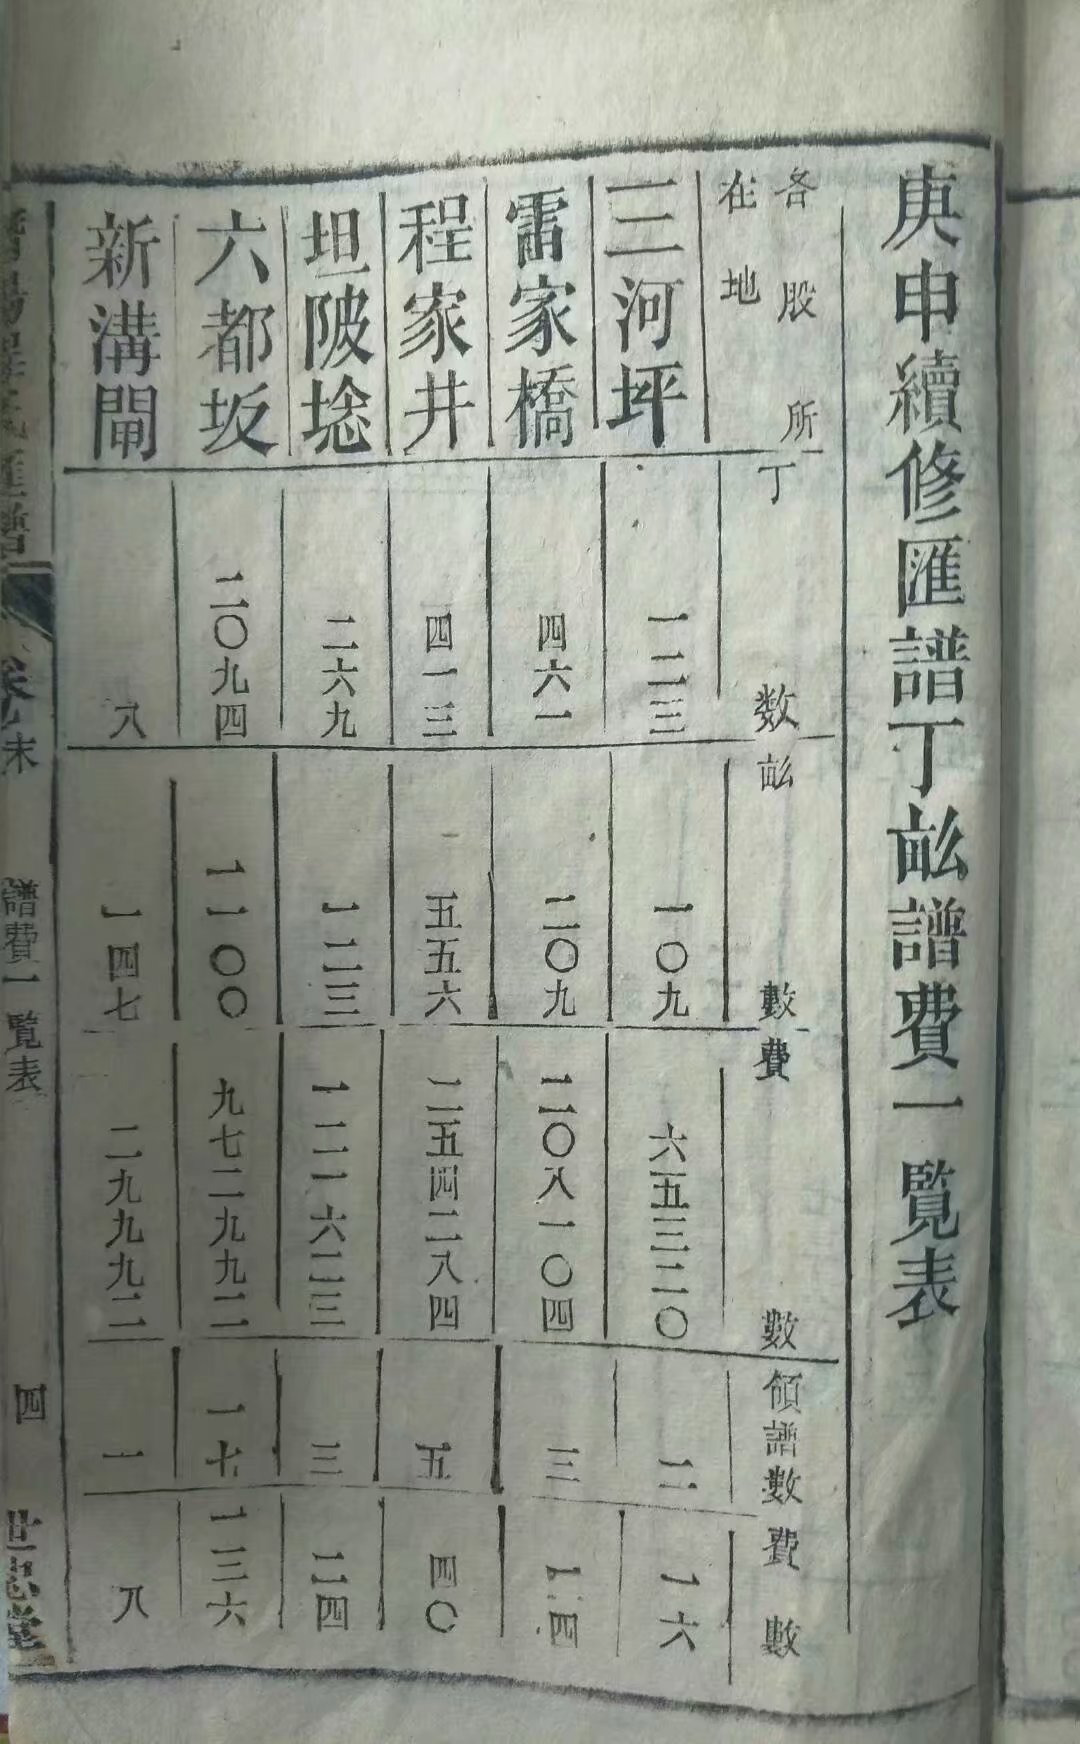 庚申續修匯譜丁畝譜費一覽表
各股所在地 丁數 畝數 費數 領譜數 費數
三河坪 一二三 一〇九 六五三二〇 二 一六
雷家橋 四六一 二〇九 二〇八一〇四 三 二四
程家井 四一三 五五六 二五四二八四 五 四〇
坦陂埝 二六九 一二三 一二一六二三 三 二四
六都坂 二〇九四 一一〇〇 九七二九九二 一七 一三六
新溝閘 八 一四七 二九九九二 一 八
氏匯譜 卷末 譜費一覽表 四 世忠堂